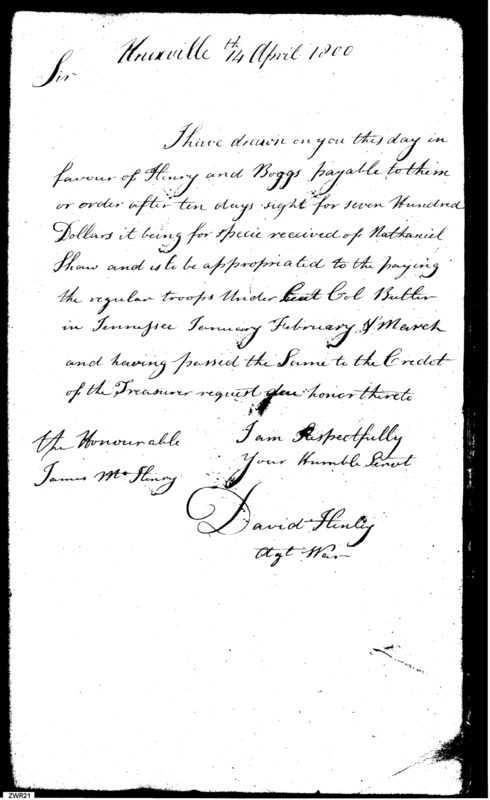 Knoxville 14th April 1800
Sir
I have drawn on you this day in
favour of Henry and Boggs payable to them
or order after ten days sight for seven Hundred
Dollars it being for specie received of Nathaniel
Shaw and is to be appropriated to the paying
the regular troops Under Col Butler
in Tennessee January February & March
and having passed the Same to the Credet
of the Treasurer request you honor thereto
the Honourable
James McHenry
I am Respectfully
Your Humble Servt
David Henley
Agt War
ZWR21